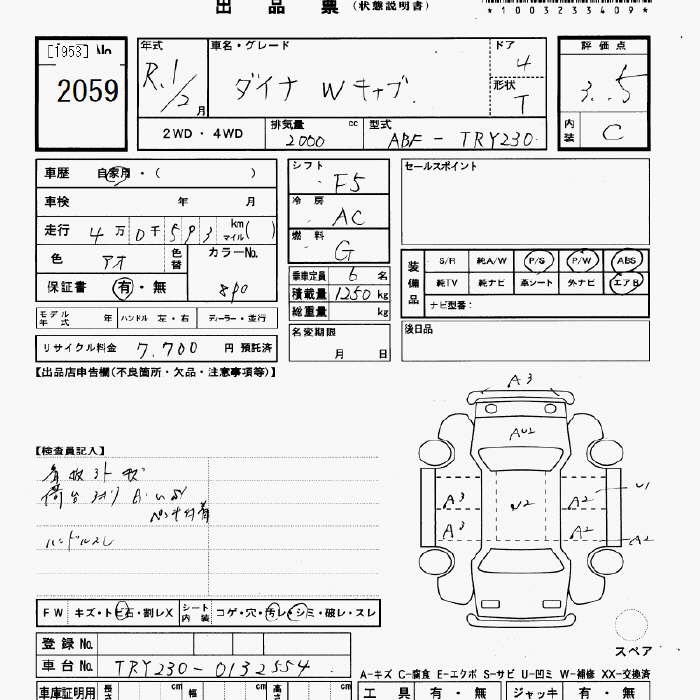 出品票 (状態説明書)
*1003233409*
[1953] No
2059
年式 R.1/2月
車名・グレード ダイナ Wキャブ
ドア 4
形状 T
評価点 3.5
内装 C
2WD・4WD
排気量 2000 cc
型式 ABF-TRY230
車歴 自家用・( )
車検 年 月
走行 4万0千593 km マイル( )
色 アオ 色替
カラーNo. 8P0
保証書 有・無
モデル年式 年 ハンドル 左・右 ディーラー・並行
リサイクル料金 7,700 円 預託済
シフト F5
冷房 AC
燃料 G
乗車定員 6 名
積載量 1250 kg
総重量 kg
名変期限 月 日
セールスポイント
装備品
S/R 純A/W P/S P/W ABS
純TV 純ナビ 革シート 外ナビ エアB
ナビ型番:
後日品
【出品店申告欄(不良箇所・欠品・注意事項等)】
【検査員記入】
ハンドルスレ
A3
AU2
A3
A3
U2
A2
A2
U1
A2
スペア
FW キズ・トビ石・割レX
シート内装 コゲ・穴・汚レ・シミ・破レ・スレ
登録No.
車台No. TRY230-0132554
A-キズ C-腐食 E-エクボ S-サビ U-凹ミ W-補修 XX-交換済
車庫証明用 長さ cm 幅 cm 高さ cm
工具 有・無 ジャッキ 有・無